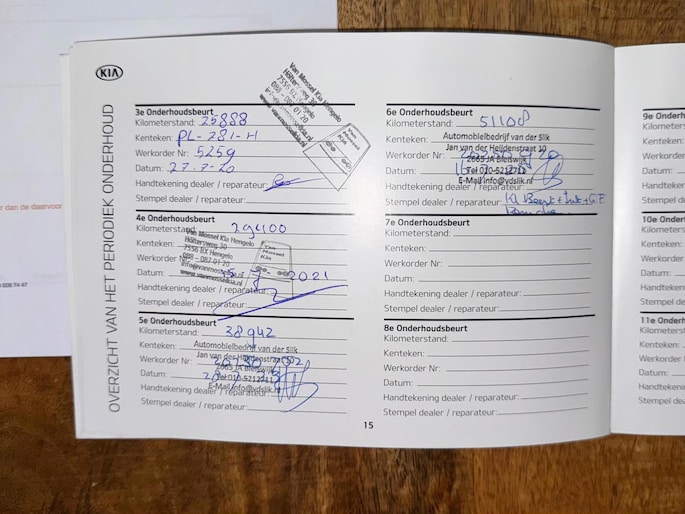 KIA
OVERZICHT VAN HET PERIODIEK ONDERHOUD
3e Onderhoudsbeurt
Kilometerstand: 25888
Kenteken: PL-281-H
Werkorder Nr: 5259
Datum: 27-7-20
Handtekening dealer / reparateur:
Stempel dealer / reparateur:
Van Mossel Kia Hengelo
7556
4e Onderhoudsbeurt
Kilometerstand: 29400
Van Mossel Kia Hengelo
7556 BX Hengelo
088 - 087 01 20
Datum: 2021
Handtekening dealer / reparateur:
Stempel dealer / reparateur:
5e Onderhoudsbeurt
Kilometerstand: 38942
Kenteken:
Automobielbedrijf van der Slik
Jan van der Heijdenstraat 10
Werkorder Nr:
2665 JA
Datum:
Tel 010-5212711
E-Mail info@vdslik.nl
Handtekening dealer / reparateur:
Stempel dealer / reparateur:
6e Onderhoudsbeurt
Kilometerstand: 51108
Kenteken:
Automobielbedrijf van der Slik
Jan van der Heijdenstraat 10
Werkorder Nr:
2665 JA Bleiswijk
Datum:
Tel 010-5212711
E-Mail info@vdslik.nl
Handtekening dealer / reparateur:
Stempel dealer / reparateur:
7e Onderhoudsbeurt
Kilometerstand:
Kenteken:
Werkorder Nr:
Datum:
Handtekening dealer / reparateur:
Stempel dealer / reparateur:
8e Onderhoudsbeurt
Kilometerstand:
Kenteken:
Werkorder Nr:
Datum:
Handtekening dealer / reparateur:
Stempel dealer / reparateur:
15
9e Onderhoud
Kilometerstand
Kenteken:
Werkorder Nr
Datum:
Handtekening
Stempel deale
10e Onderhou
Kilometerstan
Kenteken:
Werkorder N
Datum:
Handtekenin
Stempel dea
11e Onderh
Kilometerst
Kenteken:
Werkorder
Datum:
Handteken
Stempel de
er dan de daarvoor